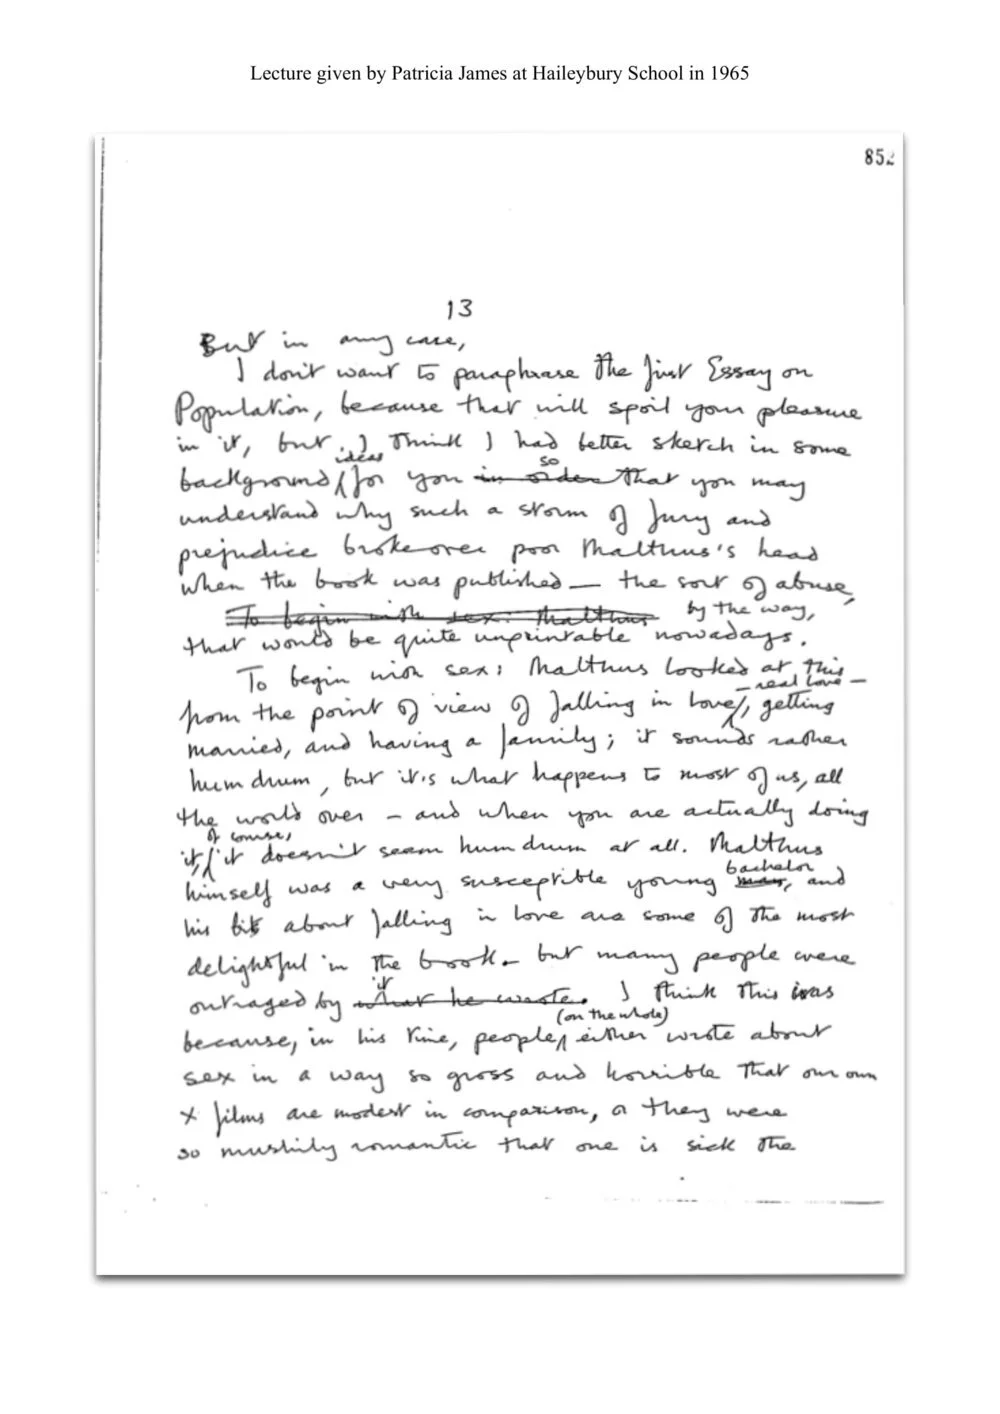 Lecture given by Patricia James at Haileybury School in 1965
852
13
But in any case,
I don't want to paraphrase the first Essay on
Population, because that will spoil your pleasure
in it, but I think I had better sketch in some
ideas so
background for you in order that you may
understand why such a storm of fury and
prejudice broke over poor Malthus's head
when the book was published — the sort of abuse,
To begin with sex: Malthus by the way,
that would be quite unprintable nowadays.
To begin with sex: Malthus looked at this
— real love —
from the point of view of falling in love, getting
married, and having a family; it sounds rather
humdrum, but it's what happens to most of us, all
the world over – and when you are actually doing
of course,
it, it doesn't seem humdrum at all. Malthus
bachelor
himself was a very susceptible young man, and
his bits about falling in love are some of the most
delightful in the book – but many people were
it
outraged by what he wrote. I think this was
(on the whole)
because, in his time, people either wrote about
sex in a way so gross and horrible that our own
X films are modest in comparison, or they were
so mushily romantic that one is sick the